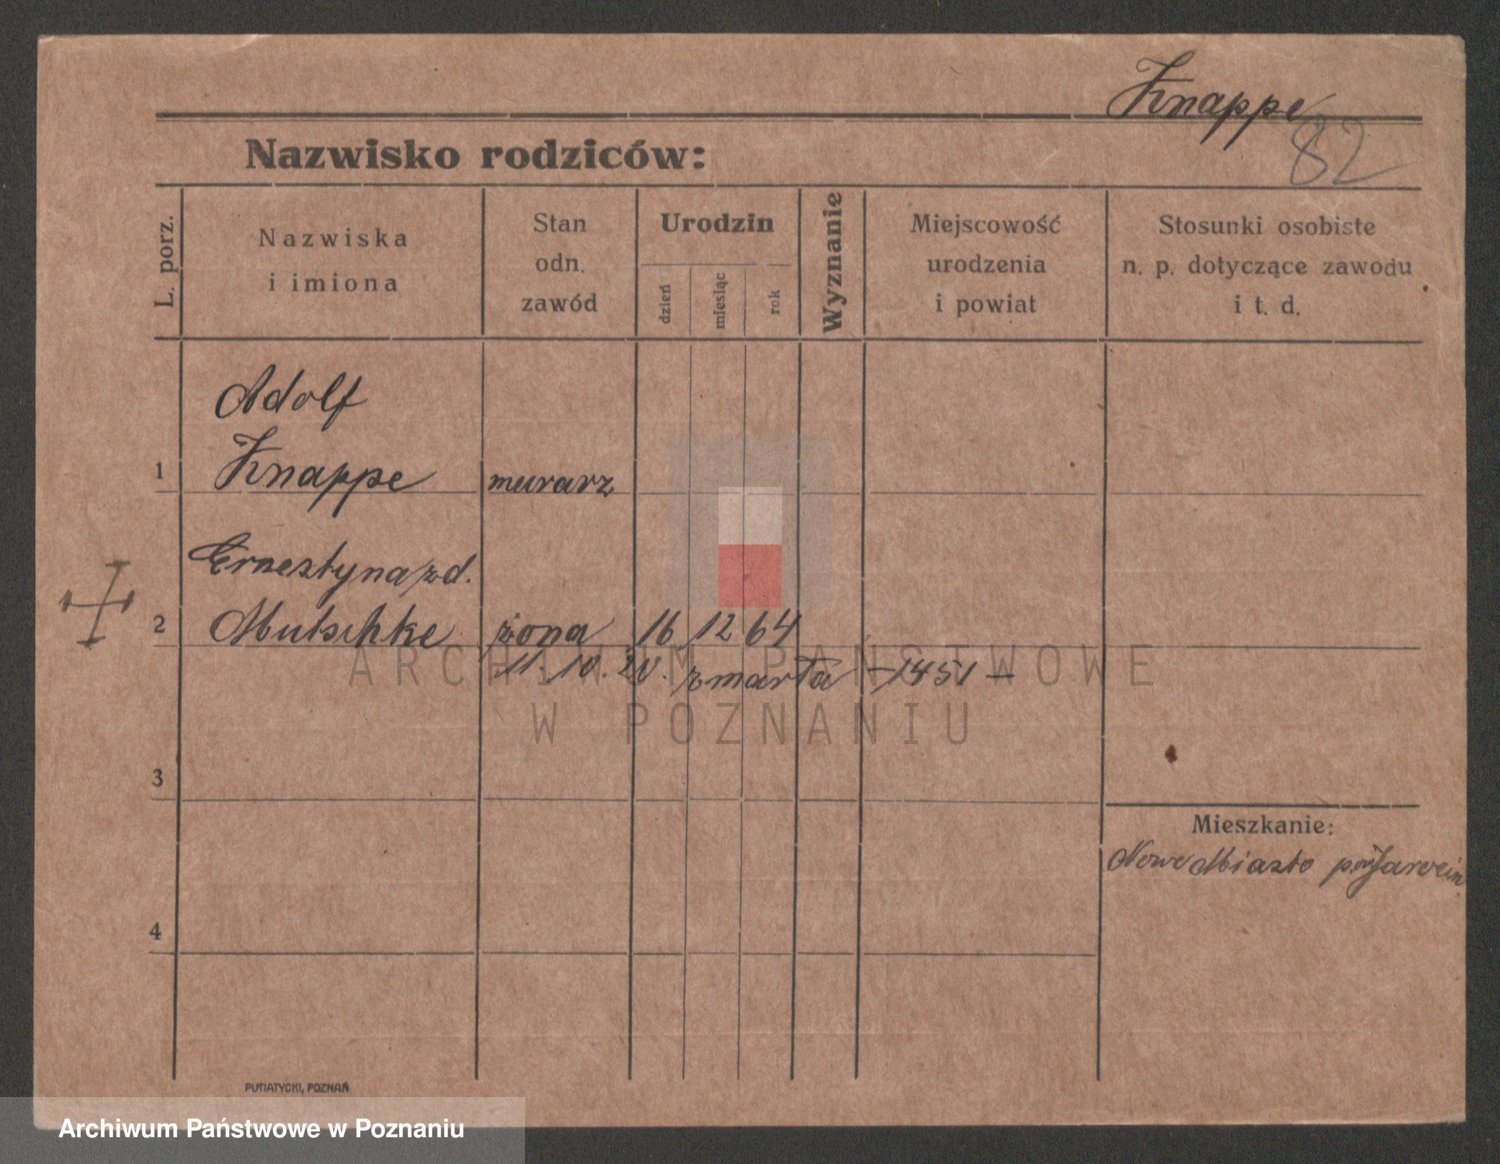 Knappe
82
Nazwisko rodziców:
L. porz.
Nazwiska
i imiona
Stan
odn.
zawód
Urodzin
dzień
miesiąc
rok
Wyznanie
Miejscowość
urodzenia
i powiat
Stosunki osobiste
n. p. dotyczące zawodu
i t. d.
Adolf
1 Knappe murarz
Ernestyna zd.
2 Mutschke żona 16 12 64
11. 10. 20. zmarła – 1451 –
ARCHIWUM PAŃSTWOWE
W POZNANIU
3
Mieszkanie:
Nowe Miasto pow Jarocin
4
PUTIATYCKI, POZNAŃ
Archiwum Państwowe w Poznaniu